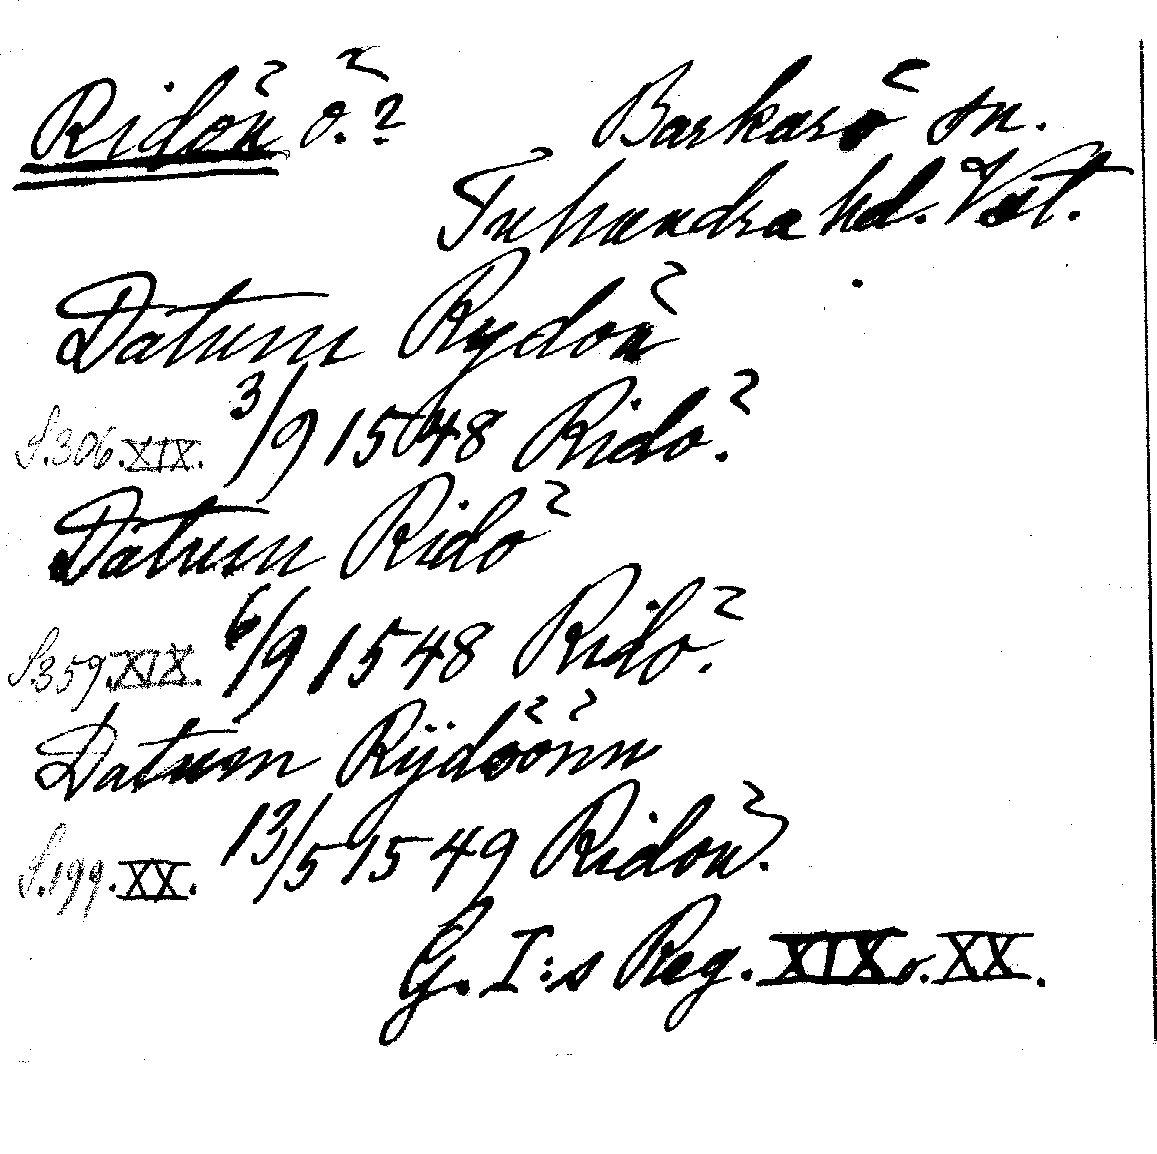 Ridön ö. ? Barkarö sn.
Tuhundra hd. Vstl.
Datum Rydön
S.306.XIX. 3/9 1548 Ridö.
Datum Ridö
S.359.XIX. 6/9 1548 Ridö.
Datum Rÿdöönn
S.199.XX. 13/5 1549 Ridön.
G. I:s Reg. XIX o. XX.